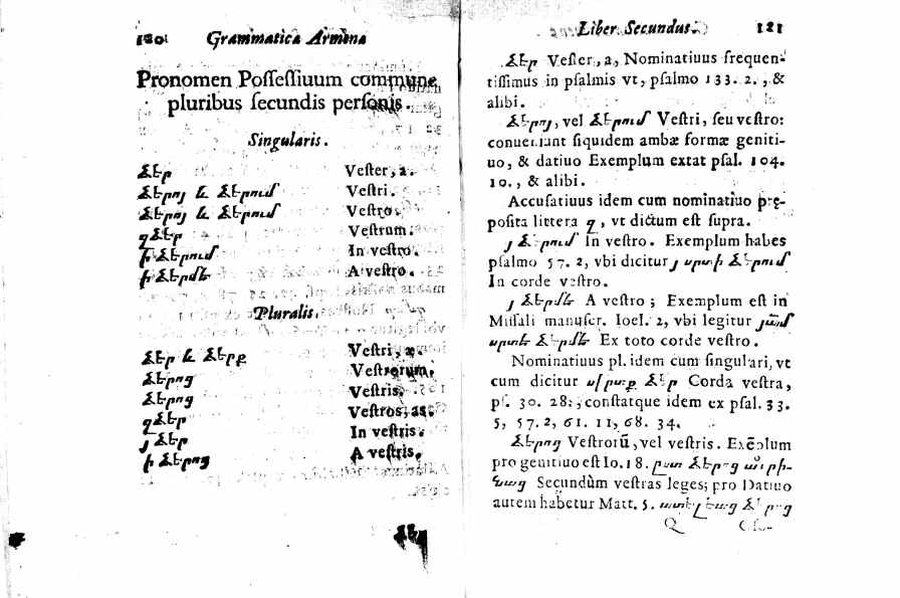 180. Grammatica Armena
Pronomen Possessiuum commune
pluribus secundis personis.
Singularis.
ձեր Vester, a.
ձերոյ և ձերում Vestri.
ձերոյ և ձերում Vestro.
զձեր Vestrum.
ի ձերում In vestro.
ի ձերմէ A vestro.
Pluralis.
ձեր և ձերք Vestri, æ.
ձերոց Vestrorum.
ձերոց Vestris.
զձեր Vestros, as.
յ ձեր In vestris.
ի ձերոց A vestris.
ձեր
Liber Secundus. 181
ձեր Vester, a, Nominatiuus frequen-
tissimus in psalmis vt, psalmo 133. 2., &
alibi.
ձերոյ, vel ձերում Vestri, seu vestro:
conueniunt siquidem ambæ formæ geniti-
uo, & datiuo Exemplum extat psal. 104.
10., & alibi.
Accusatiuus idem cum nominatiuo præ-
posita littera զ, vt dictum est supra.
յ ձերում In vestro. Exemplum habes
psalmo 57. 2, vbi dicitur յ սրտի ձերում
In corde vestro.
յ ձերմէ A vestro; Exemplum est in
Missali manuscr. Ioel. 2, vbi legitur
սրտէ ձերմէ Ex toto corde vestro.
Nominatiuus pl. idem cum singulari, vt
cum dicitur սիրտք ձեր Corda vestra,
ps. 30. 28:, constatque idem ex psal. 33.
5, 57. 2, 61. 11, 68. 34.
ձերոց Vestrorū, vel vestris. Exēplum
pro genitiuo est Io. 18. ըստ ձերոց
Secundùm vestras leges; pro Datiuo
autem habetur Matt. 5. ձերոց
Q